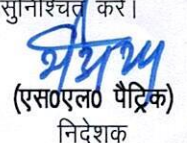 सुनिश्चित करें।
(एस0एल0 पैट्रिक)
निदेशक